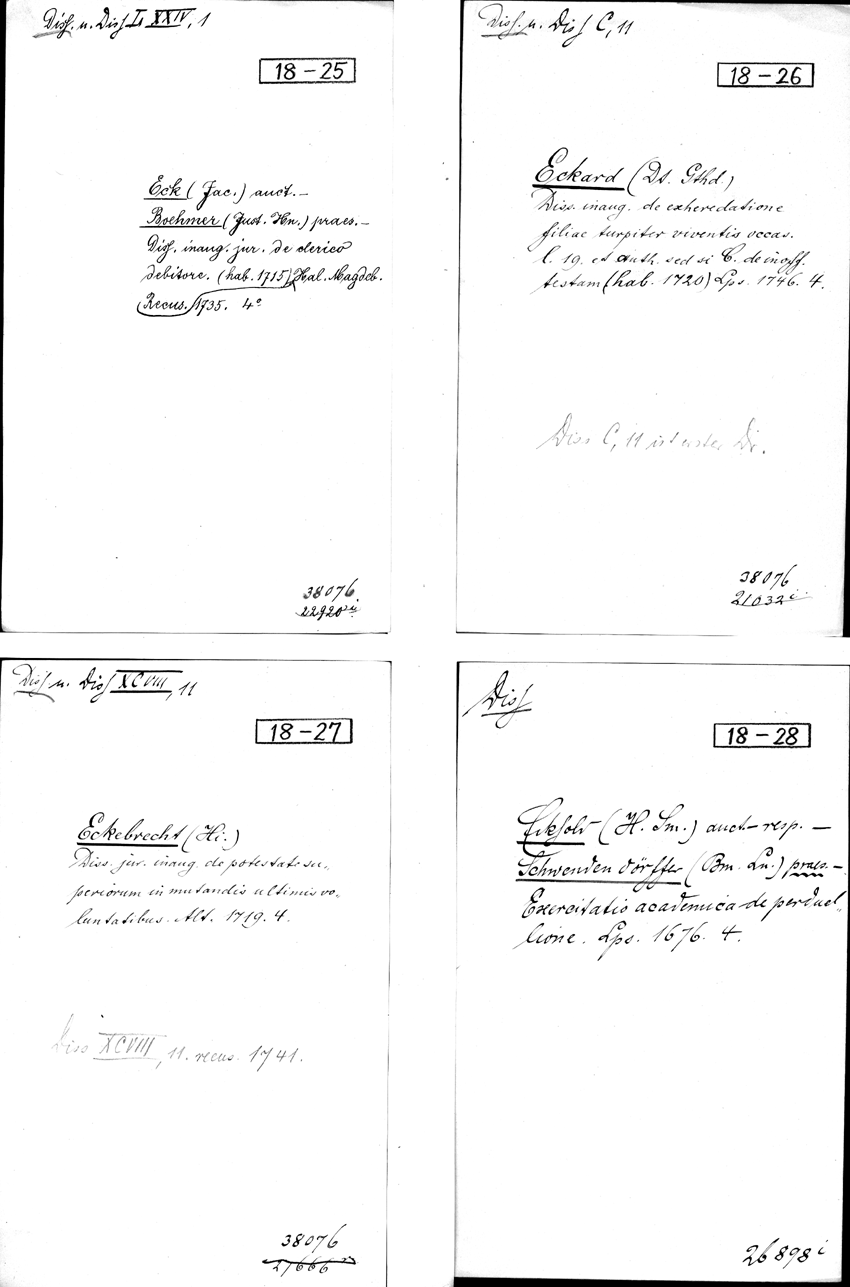 Diss. u. Diss I XXIV, 1
18-25
Eck (Jac.) auct. —
Boehmer (Just. Hn.) praes. —
Diss. inaug. jur. de clerico
debitore. (hab. 1715) Hal. Magdeb.
(Recus.) 1735. 4°
38076
22920
Diss. u. Diss C, 11
18-26
Eckard (Dt. Gthd.)
Diss. inaug. de exheredatione
filiae turpiter viventis occas.
l. 19. et auth. sed si C. de inoff.
testam (hab. 1720) Lps. 1746. 4.
Diss C, 11 ist erster Dr.
38076
21032 i
Diss u. Diss XCVIII, 11
18-27
Eckebrecht (Hi.)
Diss. jur. inaug. de potestate su„
periorum in mutandis ultimis vo„
luntatibus. Alt. 1719. 4.
Diss XCVIII, 11. recus. 1741.
38076
21666
Diss
18-28
Eckhold (H. Sm.) auct.-resp. —
Schwendendörffer (Bm. Ln.) praes. —
Exercitatio academica de perduel„
lione. Lps. 1676. 4.
26898 i